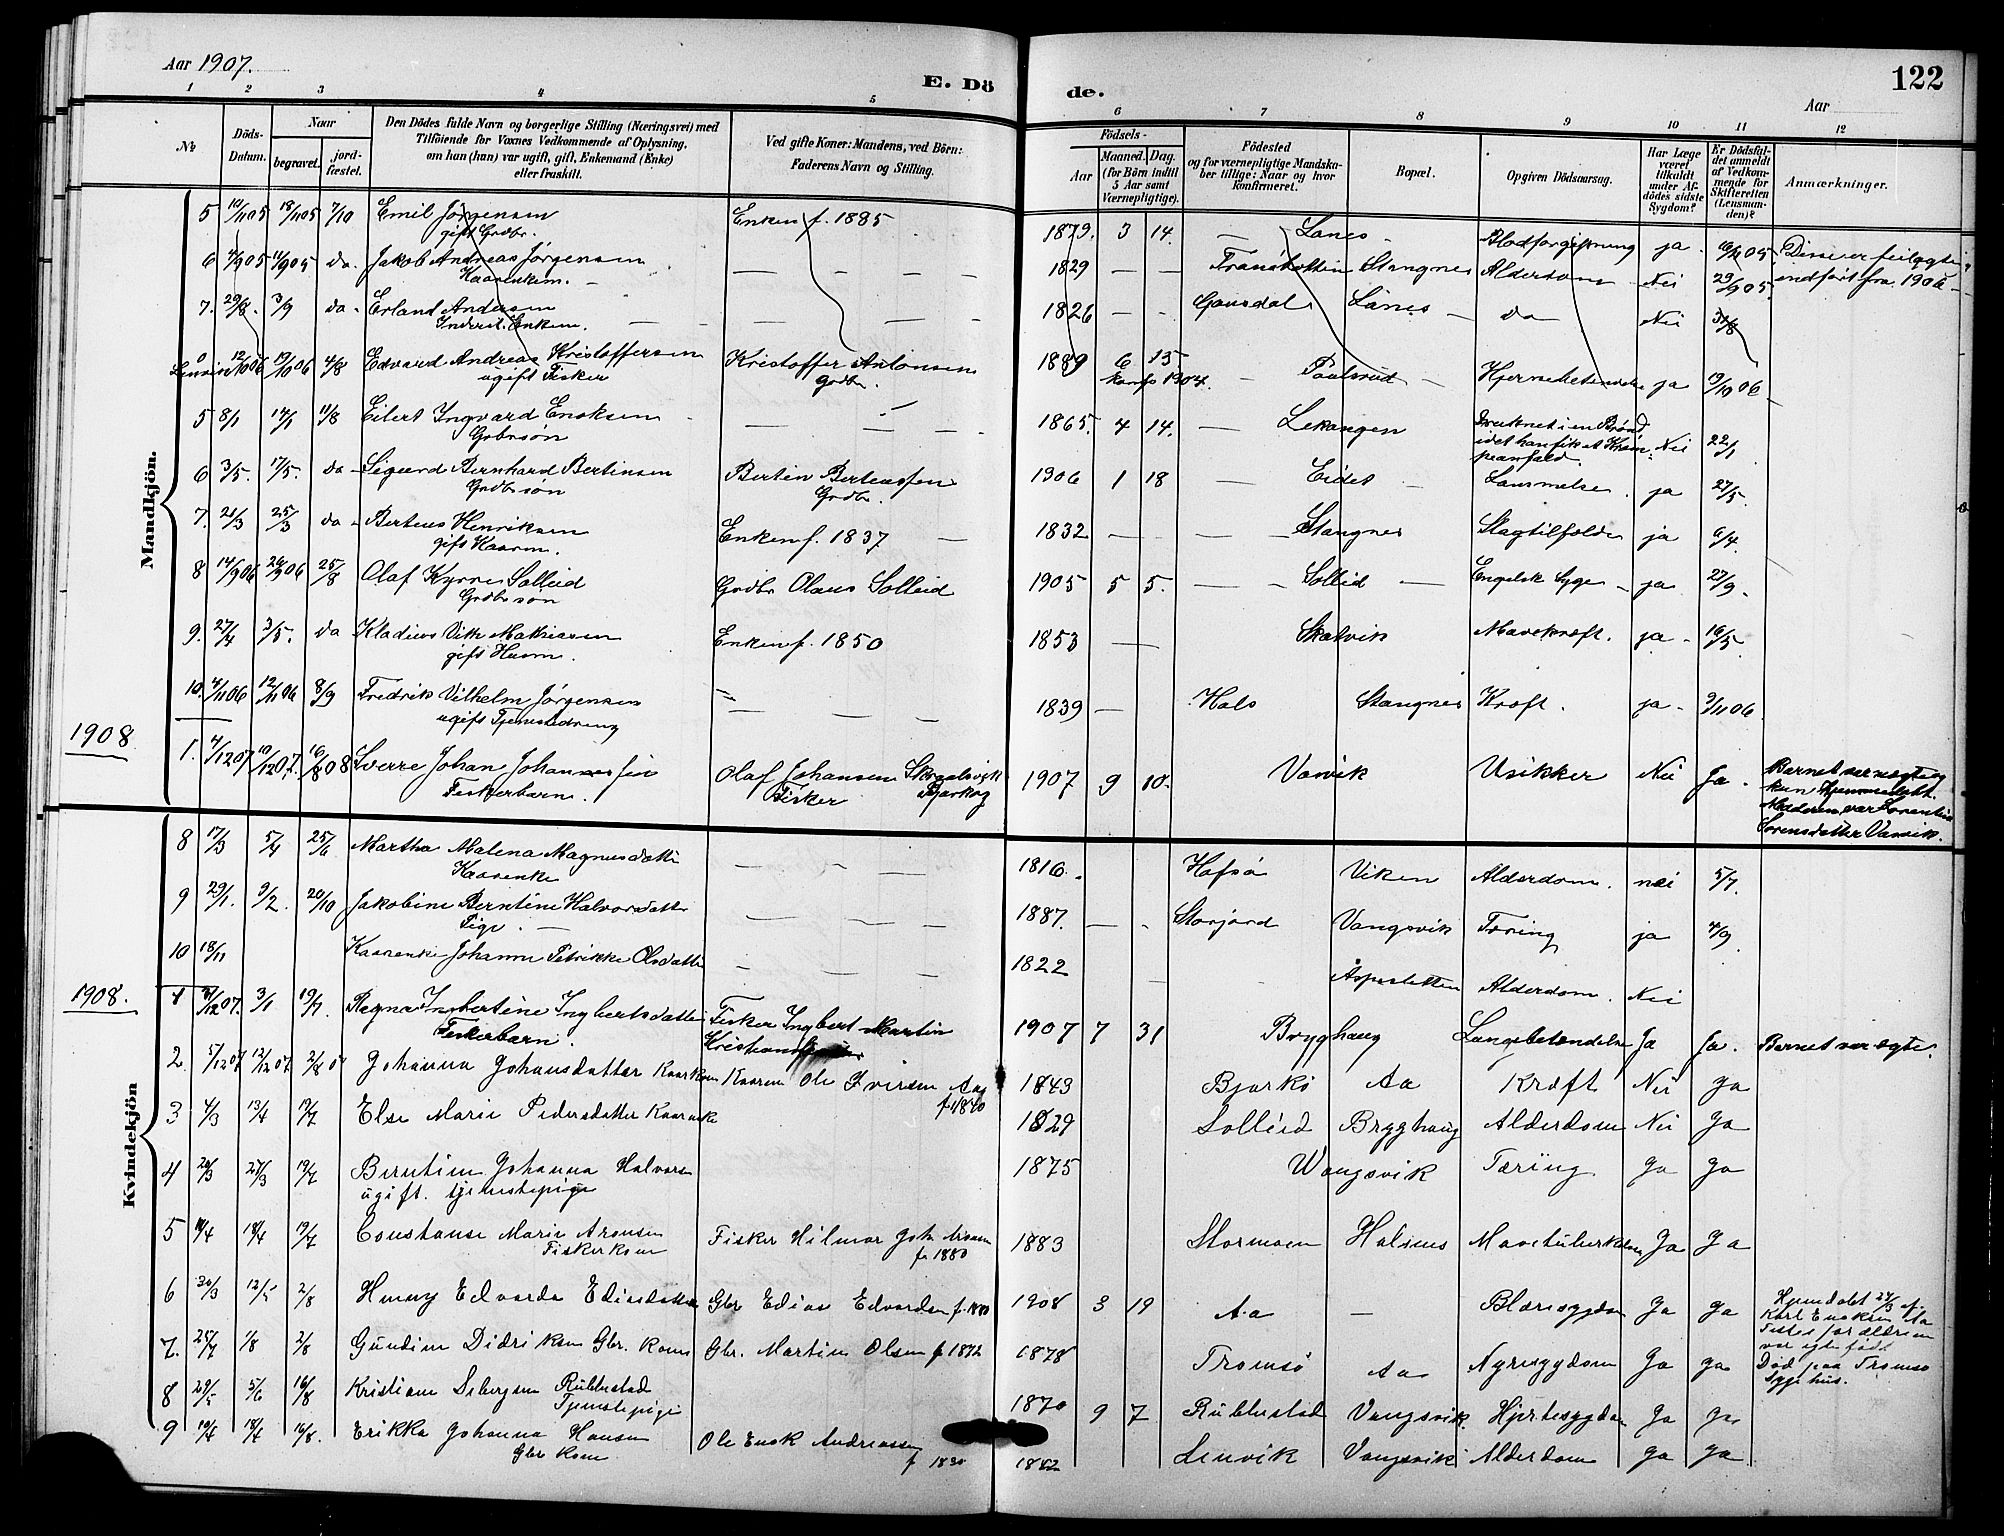 Aar 1907.
E. Dö
de.
122
Aar
1 2 3 4 5
6 7 8 9 10 11 12
№
Döds-
Datum.
Naar
begravet. jord-
fæstet.
Den Dödes fulde Navn og borgerlige Stilling (Næringsvei) med
Tilföiende for Voxnes Vedkommende af Oplysning,
om han (hun) var ugift, gift, Enkemand (Enke)
eller fraskilt.
Ved gifte Koner: Mandens, ved Börn:
Faderens Navn og Stilling.
Födsels-
Aar Maaned. Dag.
(for Börn indtil
5 Aar samt
Værnepligtige).
Födested
og for værnepligtige Mandska-
ber tillige: Naar og hvor
konfirmeret.
Bopæl.
Opgiven Dödsaarsag.
Har Læge
været
tilkaldt
under Af-
dödes sidste
Sygdom?
Er Dödsfal-
det anmeldt
af Vedkom-
mende for
Skifteretten
(Lensman-
den)?
Anmærkninger.
Mandkjön.
5 10/11 05 18/11 05 7/10 Emil Jørgensen Enken f. 1885 1879. 3 14. — Lanes - Blodforgiftning ja - 05 Disse er
gift Grdbr.
6 4/9 05 11/9 05 da - Jakob Andreas Jørgensen — — — — 1829 — — Stangnes Alderdom Nei 29/9 05. indført fra 1906 —
7. 29/8. 3/9 da - Erland Andersen — — — — 1826 — - Gausdal Lanes — da — Nei 31/8
Enkem.
12/10 06 19/10 06 4/8 Edvard Andreas Kristoffersen Kristoffer Antonsen 1889 6 15 — Paalsrud — ja 19/10 06
ugift Fisker Grdbr. Konf. 1904.
5 8/1 14/1 11/8 Eilert Ingvard Enoksen — — — — 1865. 4 14. — Lekangen Druknet i en Brønd Nei 22/1
Grbrsøn idet han fik et Kram-
peanfald.
6 3/5. 17/5. da - Sigurd Bernhard Bertinsen Bertin Berteussen 1906 1 18 — Eidet — ja 27/5
Grdbrsøn Grdbr.
7. 21/3 25/3 da - Berteus Henriksen Enken f. 1837 — 1832 — — — Stangnes Slagtilfælde ja 6/4.
gift Kaarm.
8 14/9 06 26/9 06 25/8 Olaf Kyrre Solleid Grdbr Olaus Solleid 1905 5 5. — Solleid — Engelsk Syge - ja 27/9.
Grdbrsøn
9. 27/4 3/5. da Kladius Vik Mathiassen Enken f. 1850 1853 — Skatvik Mavekræft. ja - 16/5.
gift Husm.
10. 4/11 06 12/11 06 8/9 Fredrik Vilhelm Jørgensen — — — 1839 — Hals Stangnes Kræft. ja - 9/11 06.
ugift Tjenestedreng
1908
1. 4/12 07 10/12 07. 16/8 08 Sverre Johan Johannessen Olaf Johansen 1907 9 10. Vasvik Usikker Nei Ja. Barnet var uægte og
Fiskerbarn. Fisker Bjarkøy kun hjemmedøbt.
Moderen var Lorentine
Sorensdatter Vasvik.
Kvindekjön
8 17/3 5/4 25/6 Martha Malena Magnusdatter — — — 1816. Hofsø Viken Alderdom. nei 5/7.
Kaarenke
9 29/1. 9/2. 20/10 Jakobine Berntine Halvorsdatter — — — 1887. — - Storjord Vangsvik Tæring ja 4/9.
Pige. —
10 18/11 Kaarenke Johanne Petrikke Olsdatter — — — 1822 — Alderdom. Nei
1908.
1 31/12 07. 3/1 19/7. Ragna Ingbertine Ingbertsdatter Fisker Ingbert Martin 1907 7 31 Brygghaug Lungebetændelse Ja Ja. Barnet var ægte.
Fiskerbarn.
2. 5/12 07 12/12 07 2/8 08 Johanna Johansdatter Kaarkone Kaarm Ole Iversen Aa 1843 Bjarkö Aa Kræft Nei Ja
f 1840
3 4/3 13/4 19/7 Else Marie Pedersdatter Kaarenke 1829 Solleid Brygghaug Alderdom Nei Ja
4 20/3 27/3 19/7 Berntine Johanna Halvors 1875 Wangsvik Tæring Ja Ja
ugift. tjenestepige
5 11/4 18/4 19/7 Constanse Marie Aronsen Fisker Hilmar Joh. Aronsen 1883 Stormoen Halsnes Ja Ja
Fiskerkone f. 1880
6 30/3 12/5 2/8 Henny Edvarda Ediasdatter Gbr Edias Edvardsen f. 1880 1908 3 19 Aa — Blæresygdom Ja Ja Hjemdøbt 27/3 af
Karl Enoksen Aa
Forældrene
var
7. 25/7 1/8 2/8 Gundine Didriksen Gbr. Kone Gbr. Martin Olsen f 1872 1878 Tromsø Aa Nyresygdom Ja Ja Död paa Tromsø
Sygehus.
8 29/5 5/6 16/8 Kristiane Rubbestad 1870 9 7 Rubbestad Vangsvik Hjertesygdom Ja Ja
Tjenestepige
9 10/4 18/4 16/8. Erikka Johanna Hansen Ole Enok Andreassen 1842 Lenvik Vangsvik Alderdom Ja Ja
Gbr Kone f 1830